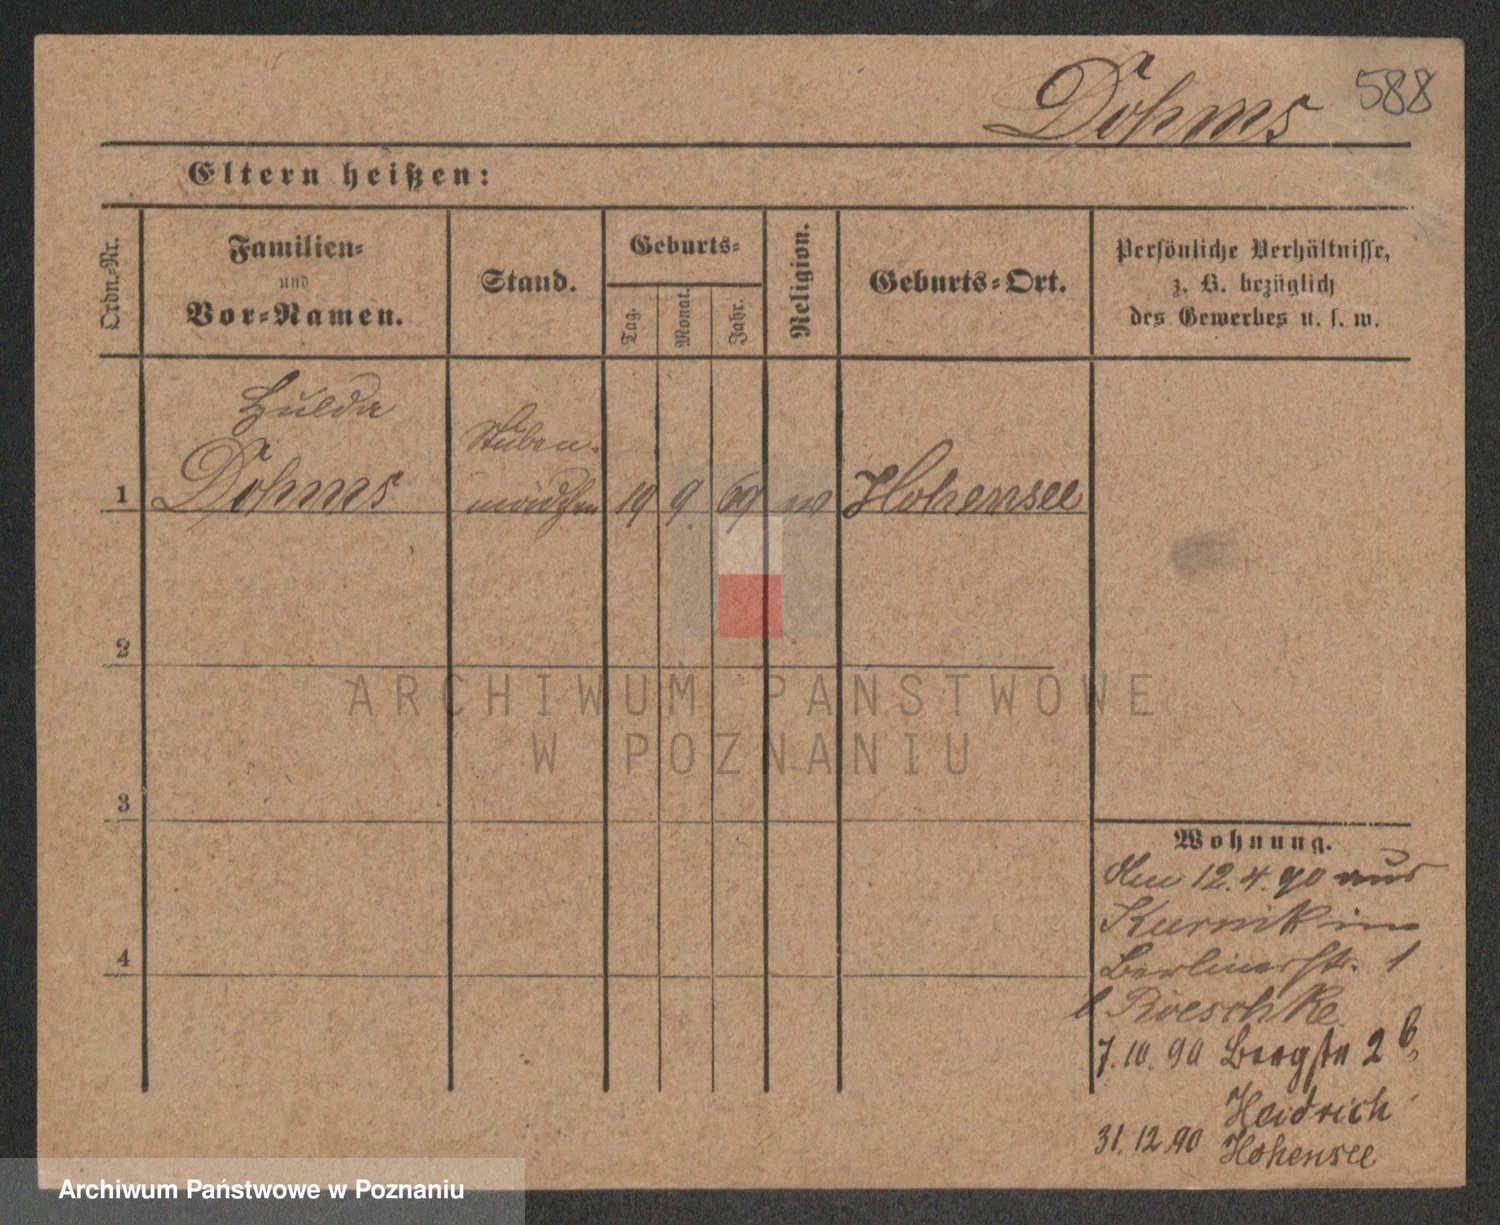 Dohms 588
Eltern heißen:
Ordn.-Nr.
Familien-
und
Vor-Namen.
Stand.
Geburts-
Tag.
Monat.
Jahr.
Religion.
Geburts-Ort.
Persönliche Verhältnisse,
z. B. bezüglich
des Gewerbes u. s. w.
Hulda
Stuben-
1 Dohms mädchen 19 9. 69 ev Hohensee
2
ARCHIWUM PAŃSTWOWE
W POZNANIU
3
Wohnung.
Den 12.4.90 aus
Kurnik in
4 Berlinerstr. 1
b Roeschke
7.10.90 Bergstr 2 b,
Heidrich
31.12.90 Hohensee
Archiwum Państwowe w Poznaniu